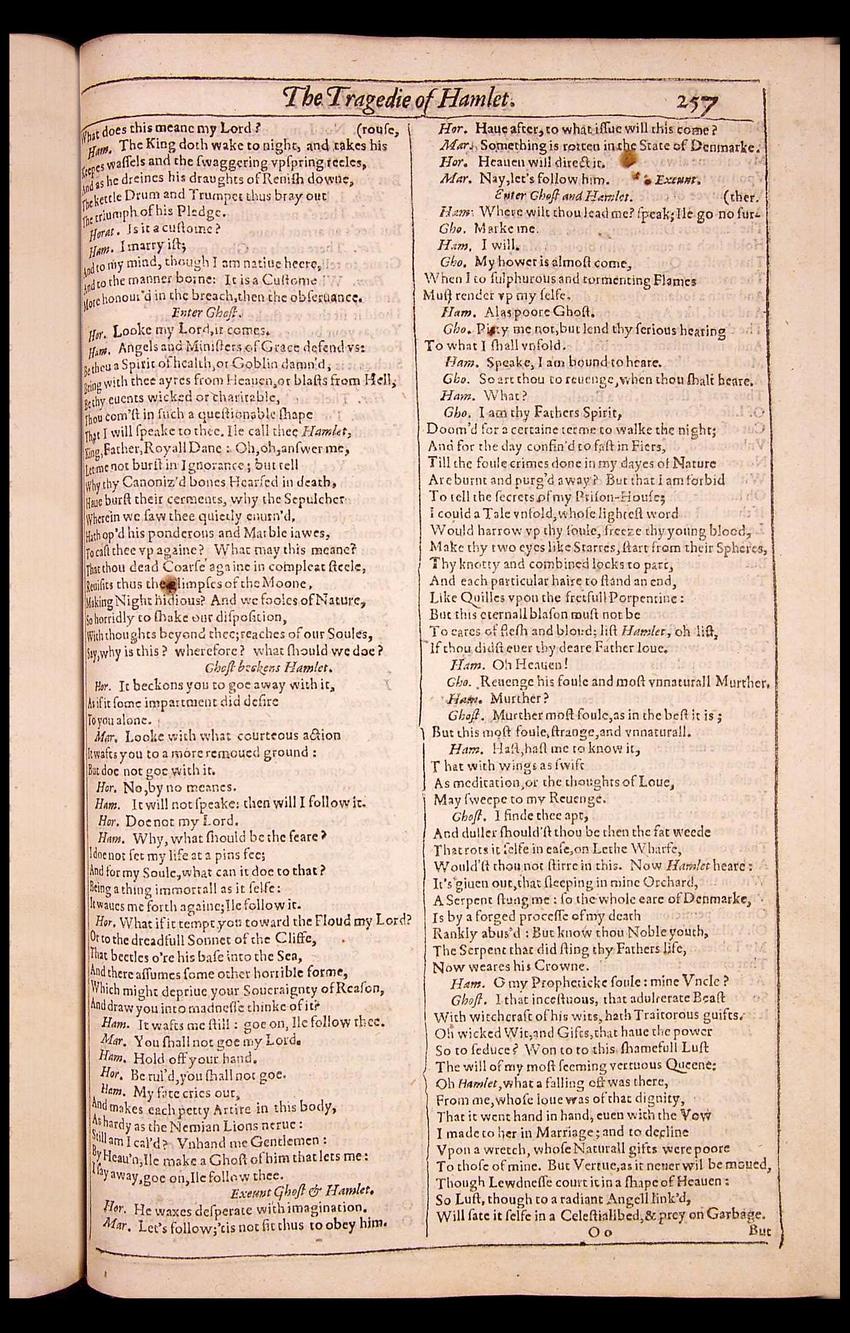 The Tragedie of Hamlet.
257
What does this meane my Lord? (rouse,
Ham. The King doth wake to night, and takes his
Keepes wassels and the swaggering vpspring reeles,
And as he dreines his draughts of Renish downe,
The kettle Drum and Trumpet thus bray out
The triumph of his Pledge.
Horat. Is it a custome?
Ham. I marry ist;
And to my mind, though I am natiue heere,
And to the manner borne: It is a Custome
More honour'd in the breach, then the obseruance.
Enter Ghost.
Hor. Looke my Lord, it comes.
Ham. Angels and Ministers of Grace defend vs:
Be thou a Spirit of health, or Goblin damn'd,
Bring with thee ayres from Heauen, or blasts from Hell,
Be thy euents wicked or charitable,
Thou com'st in such a questionable shape
That I will speake to thee. Ile call thee Hamlet,
King, Father, Royall Dane: Oh, oh, answer me,
Let me not burst in Ignorance; but tell
Why thy Canoniz'd bones Hearsed in death,
Haue burst their cerments, why the Sepulcher
Wherein we saw thee quietly enurn'd,
Hath op'd his ponderous and Marble iawes,
To cast thee vp againe? What may this meane?
That thou dead Coarse againe in compleat steele,
Reuisits thus the glimpses of the Moone,
Making Night hidious? And we fooles of Nature,
So horridly to shake our disposition,
With thoughts beyond thee; reaches of our Soules,
Say, why is this? wherefore? what should we doe?
Ghost beckens Hamlet.
Hor. It beckons you to goe away with it,
As if it some impartment did desire
To you alone.
Mar. Looke with what courteous action
It wafts you to a more remoued ground:
But doe not goe with it.
Hor. No, by no meanes.
Ham. It will not speake: then will I follow it.
Hor. Doe not my Lord.
Ham. Why, what should be the feare?
I doe not set my life at a pins fee;
And for my Soule, what can it doe to that?
Being a thing immortall as it selfe:
It waues me forth againe; Ile follow it.
Hor. What if it tempt you toward the Floud my Lord?
Or to the dreadfull Sonnet of the Cliffe,
That beetles o're his base into the Sea,
And there assumes some other horrible forme,
Which might depriue your Soueraignty of Reason,
And draw you into madnesse thinke of it?
Ham. It wafts me still: goe on, Ile follow thee.
Mar. You shall not goe my Lord.
Ham. Hold off your hand.
Hor. Be rul'd, you shall not goe.
Ham. My fate cries out,
And makes each petty Artire in this body,
As hardy as the Nemian Lions nerue:
Still am I cal'd? Vnhand me Gentlemen:
By Heau'n, Ile make a Ghost of him that lets me:
I say away, goe on, Ile follow thee.
Exeunt Ghost & Hamlet.
Hor. He waxes desperate with imagination.
Mar. Let's follow; 'tis not fit thus to obey him.
Hor. Haue after, to what issue will this come?
Mar. Something is rotten in the State of Denmarke.
Hor. Heauen will direct it.
Mar. Nay, let's follow him. Exeunt.
Enter Ghost and Hamlet. (ther.
Ham. Where wilt thou lead me? speak; Ile go no fur-
Gho. Marke me.
Ham. I will.
Gho. My hower is almost come,
When I to sulphurous and tormenting Flames
Must render vp my selfe.
Ham. Alas poore Ghost.
Gho. Pitty me not, but lend thy serious hearing
To what I shall vnfold.
Ham. Speake, I am bound to heare.
Gho. So art thou to reuenge, when thou shalt heare.
Ham. What?
Gho. I am thy Fathers Spirit,
Doom'd for a certaine terme to walke the night;
And for the day confin'd to fast in Fiers,
Till the foule crimes done in my dayes of Nature
Are burnt and purg'd away? But that I am forbid
To tell the secrets of my Prison-House;
I could a Tale vnfold, whose lightest word
Would harrow vp thy soule, freeze thy young blood,
Make thy two eyes like Starres, start from their Spheres,
Thy knotty and combined locks to part,
And each particular haire to stand an end,
Like Quilles vpon the fretfull Porpentine:
But this eternall blason must not be
To eares of flesh and bloud; list Hamlet, oh list,
If thou didst euer thy deare Father loue.
Ham. Oh Heauen!
Gho. Reuenge his foule and most vnnaturall Murther.
Ham. Murther?
Ghost. Murther most foule, as in the best it is;
But this most foule, strange, and vnnaturall.
Ham. Hast, hast me to know it,
That with wings as swift
As meditation, or the thoughts of Loue,
May sweepe to my Reuenge.
Ghost. I finde thee apt,
And duller should'st thou be then the fat weede
That rots it selfe in ease, on Lethe Wharfe,
Would'st thou not stirre in this. Now Hamlet heare:
It's giuen out, that sleeping in mine Orchard,
A Serpent stung me: so the whole eare of Denmarke,
Is by a forged processe of my death
Rankly abus'd: But know thou Noble youth,
The Serpent that did sting thy Fathers life,
Now weares his Crowne.
Ham. O my Propheticke soule: mine Vncle?
Ghost. I that incestuous, that adulterate Beast
With witchcraft of his wits, hath Traitorous guifts.
Oh wicked Wit, and Gifts, that haue the power
So to seduce? Won to to this shamefull Lust
The will of my most seeming vertuous Queene:
Oh Hamlet, what a falling off was there,
From me, whose loue was of that dignity,
That it went hand in hand, euen with the Vow
I made to her in Marriage; and to decline
Vpon a wretch, whose Naturall gifts were poore
To those of mine. But Vertue, as it neuer wil be moued,
Though Lewdnesse court it in a shape of Heauen:
So Lust, though to a radiant Angell link'd,
Will sate it selfe in a Celestiall bed, & prey on Garbage.
O o
But